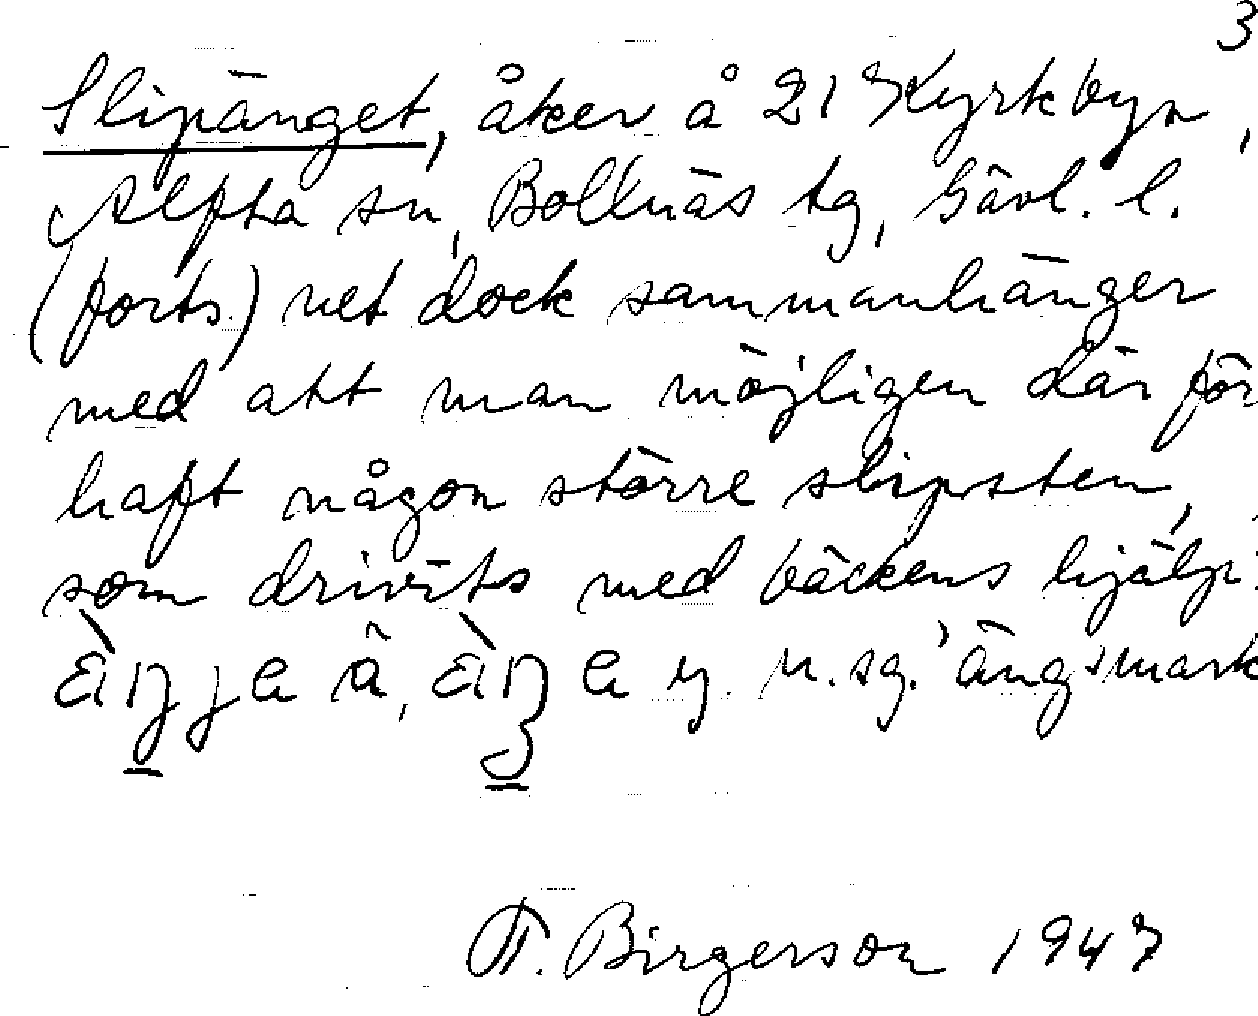 3
Slipänget, åker å 21 Kyrkbyn,
Alfta sn, Bollnäs tg, Gävl. l.
(forts.) net dock sammanhänger
med att man möjligen där för
haft någon större slipsten,
som drivits med bäckens hjälp.
å, y. n. sg. 'ängsmark
F. Birgerson 1947